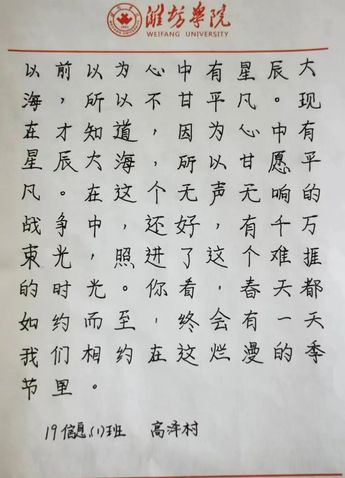 潍坊学院
WEIFANG UNIVERSITY
以前以为心中有星辰大
海，所以不甘平凡。现
在才知道，因为心中有
星辰大海，所以甘愿平
凡。在这个无声无响的
战争中，还好，有千万
束光，照进了这个难捱
的时光。你看，春天都
如约而至，终会有一天
我们相约在这烂漫的季
节里。
19信息(1)班 高泽村